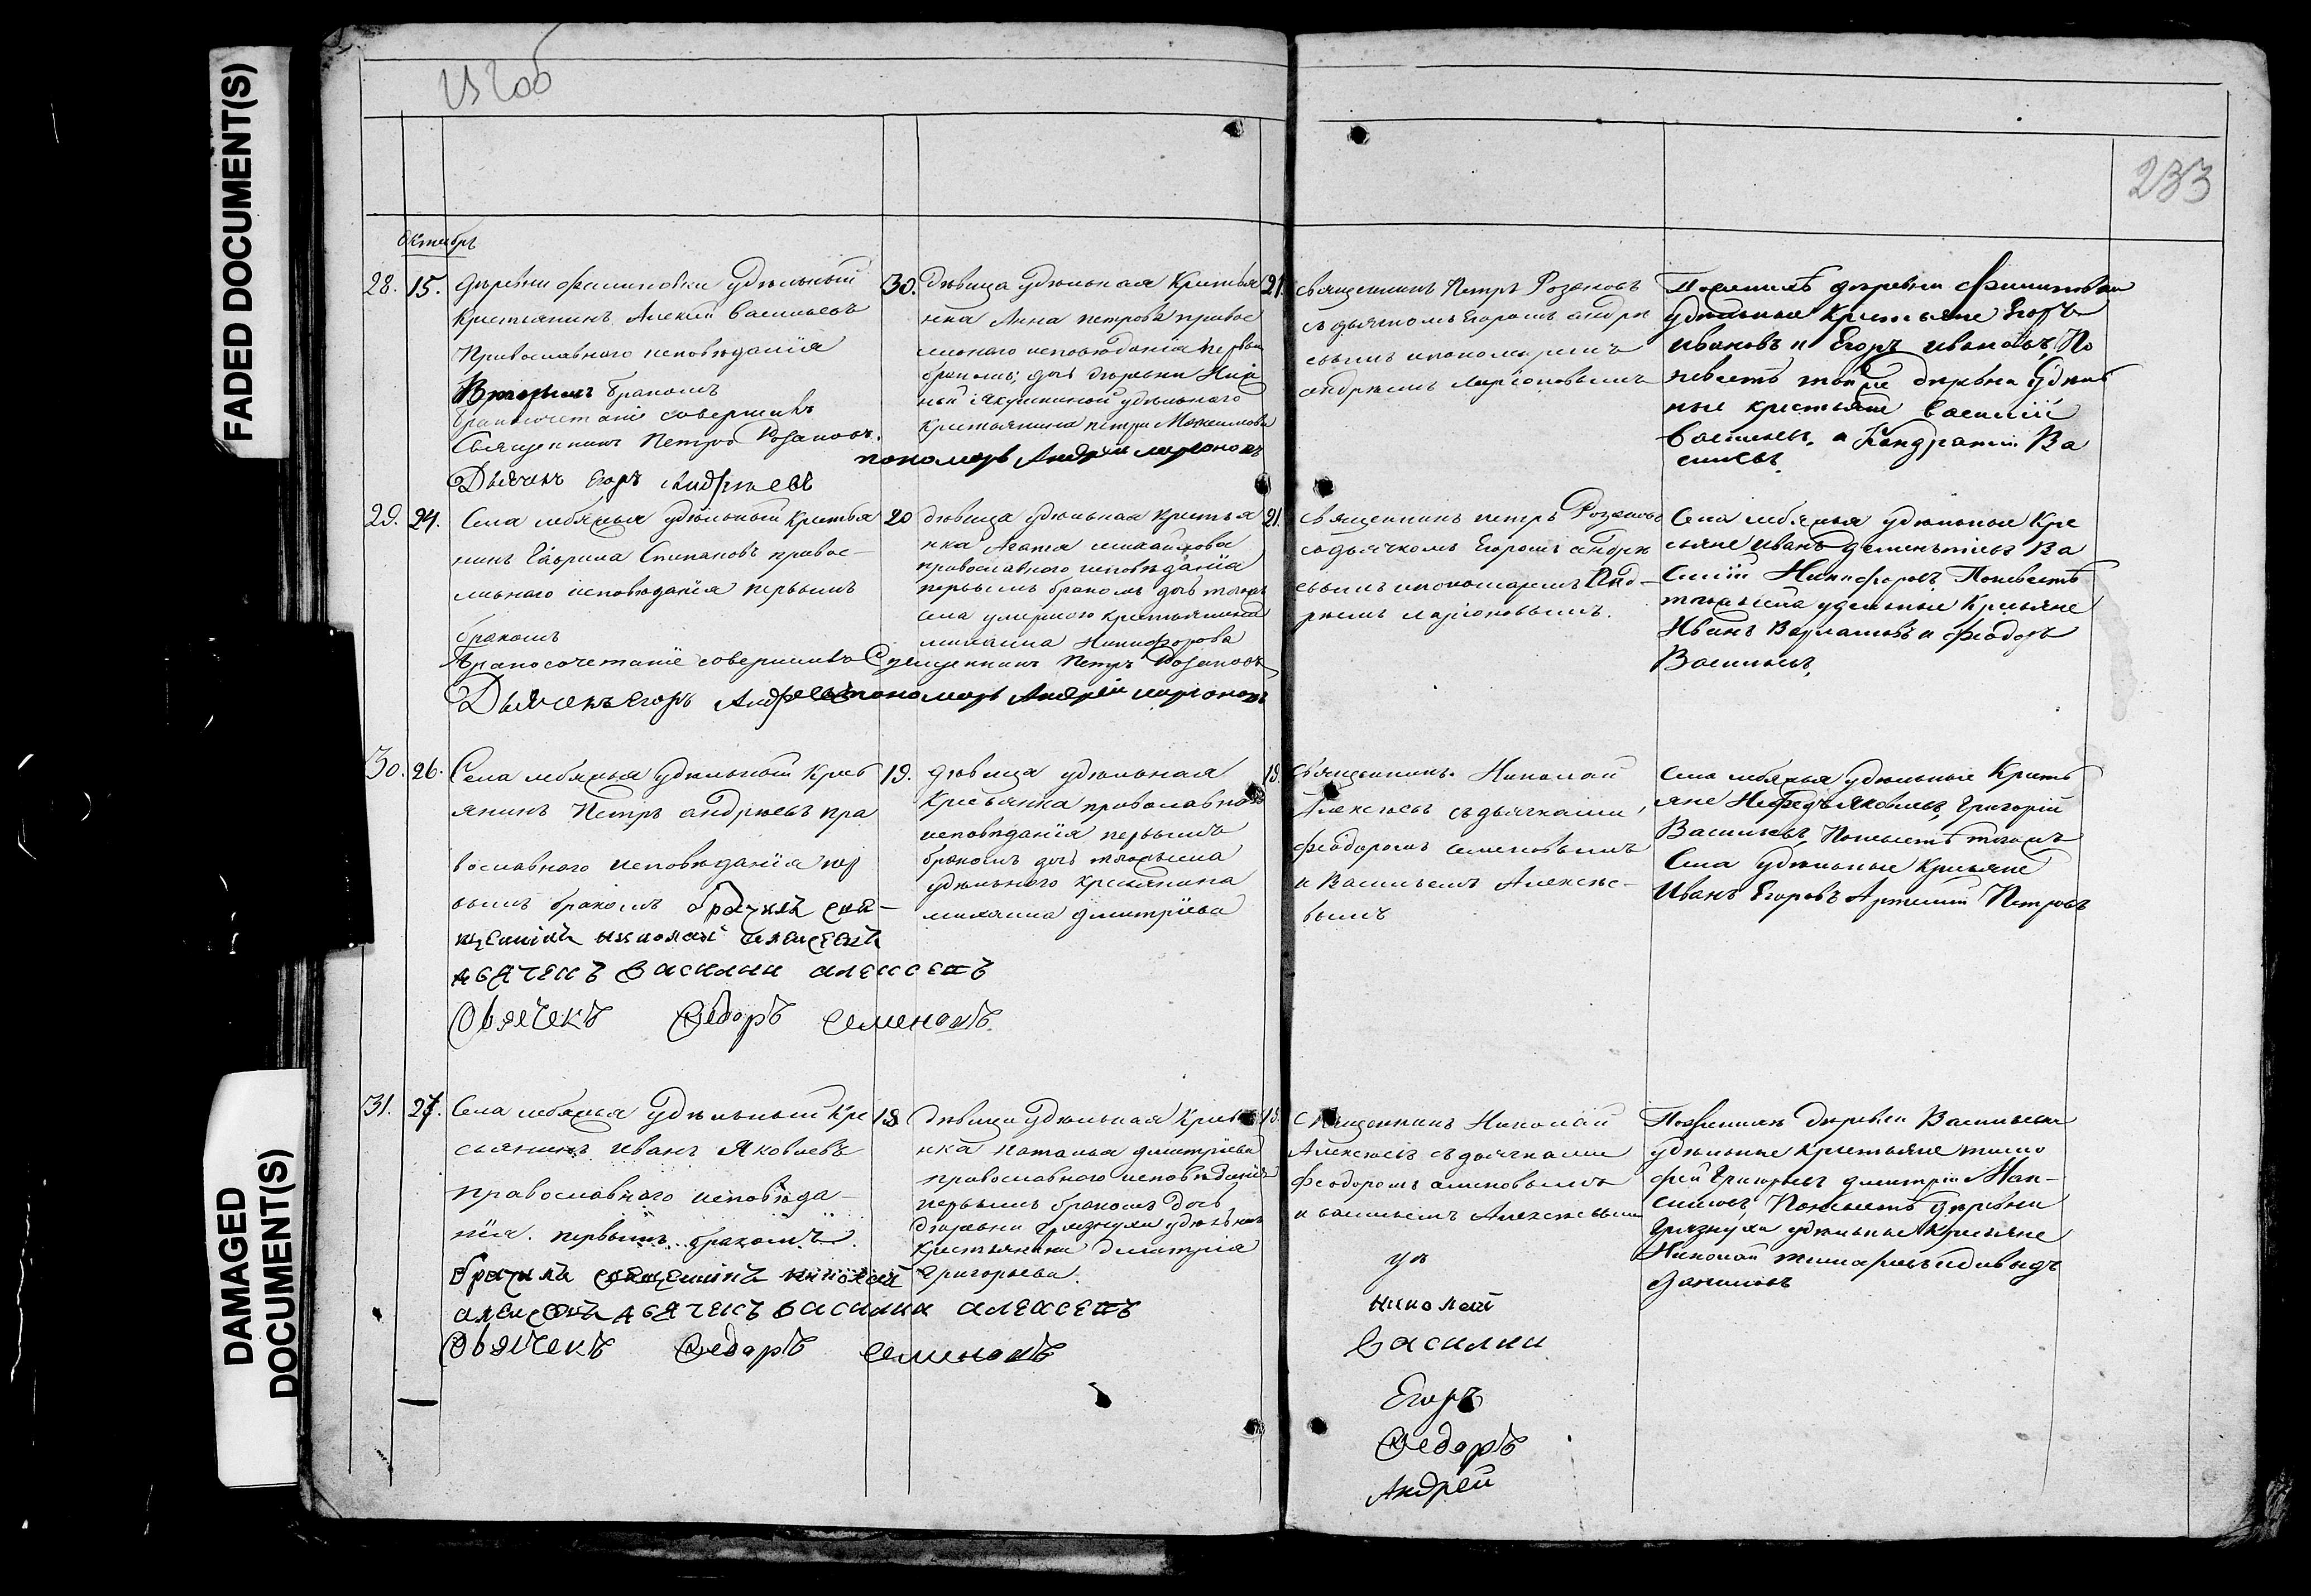 FADED DOCUMENT(S)
DAMAGED
DOCUMENT(S)
233
Октябрь
28. 15. деревни Филиповки удѣльный
крестьянинъ Алексій Васильевъ
Православнаго исповѣданія
Вторымъ бракомъ
бракосочетаніе совершилъ
Священникъ Петръ Розановъ.
Дьячекъ Егоръ Андреевъ
30. дѣвица удѣльная крестья
нка Анна Петрова правос
лавнаго исповѣданія первым
бракомъ; дочь деревни
удѣльнаго
крестьянина Петра
пономарь Андрей Ларіоновъ
21. священникъ Петръ Розановъ
съ дьячкомъ Егоромъ Андре
евымъ и пономаремъ
Андреемъ Ларіоновымъ
По женихѣ деревни Филиповки
удѣльные крестьяне Егоръ
Ивановъ и Егоръ Ивановъ, По
невестѣ той же деревни удѣль
ные крестьяне Василій
Васильевъ, и Кондратій Ва
сильевъ.
29. 24. Села Лебяжья удѣльный крестья
нинъ Гаврила Степановъ правос-
лавнаго исповѣданія первымъ
бракомъ
бракосочетаніе совершилъ Священникъ Петръ Розановъ
Дьячекъ Егоръ Андреевъ пономарь Андрей Ларіоновъ
20 дѣвица удѣльная крестья
нка Агафья Михайлова
православнаго исповѣданія
первымъ бракомъ дочь тогожъ
села умершаго крестьянина
Михаила Никифорова
21. священникъ Петръ Розановъ
съ дьячкомъ Егоромъ Андре
евымъ и пономаремъ Анд-
реемъ Ларіоновымъ.
Села Лебяжья удѣльные кре
сьяне Иванъ Дементьевъ Ва
силій Никифоровъ По невестѣ
тогожъ села удѣльные кресьяне
Иванъ Варламовъ и Феодоръ
Васильевъ,
30. 26. Села Лебяжья удѣльный крес
янинъ Петръ Андреевъ пра
вославнаго исповѣданія пер
вымъ бракомъ бракъ свя-
щенникъ Николай Алексеевъ
дьячекъ Василии Алексеевъ
Дьячекъ Федоръ Семеновъ.
19. дѣвица удѣльная
кресьянка православнаго
исповѣданія первымъ
бракомъ дочь тогожъ села
удѣльнаго кресьянина
Михаила Дмитріева
18. священникъ Николай
Алексеевъ съ дьячками,
Феодоромъ Семеновымъ
и Васильемъ Алексее-
вымъ
Села Лебяжья удѣльные кресть
яне Нефедъ Яковлевъ, Григорій
Васильевъ, По невестѣ тогожъ
Села удѣльные кресьяне
Иванъ Егоровъ Артемій Петровъ
31. 27. Села Лебяжья удѣльный кре
сьянинъ Иванъ Яковлевъ
православнаго исповѣда-
нія. первымъ бракомъ
священникъ Николай
Алексеевъ дьячекъ Василии Алексеевъ
Дьячекъ Федоръ Семеновъ
18 дѣвица удѣльная крестья
нка Наталья Дмитріева
православнаго исповѣданія
первымъ бракомъ дочь
деревни Грязнухи удѣльнаго
крестьянина Дмитрія
Григорьева.
18. священникъ Николай
Алексеевъ съ дьячками
Феодоромъ Семеновымъ
и Васильемъ Алексеевымъ
Николай
Василии
Егоръ
Федоръ
Андрей
По женихѣ деревни Васильевки
удѣльные крестьяне Тимо
фей Григорьевъ Дмитрій Мак-
симовъ, По невестѣ деревни
Грязнухи удѣльные кресьяне
Николай Тимофеевъ и Давыдъ
Даниловъ